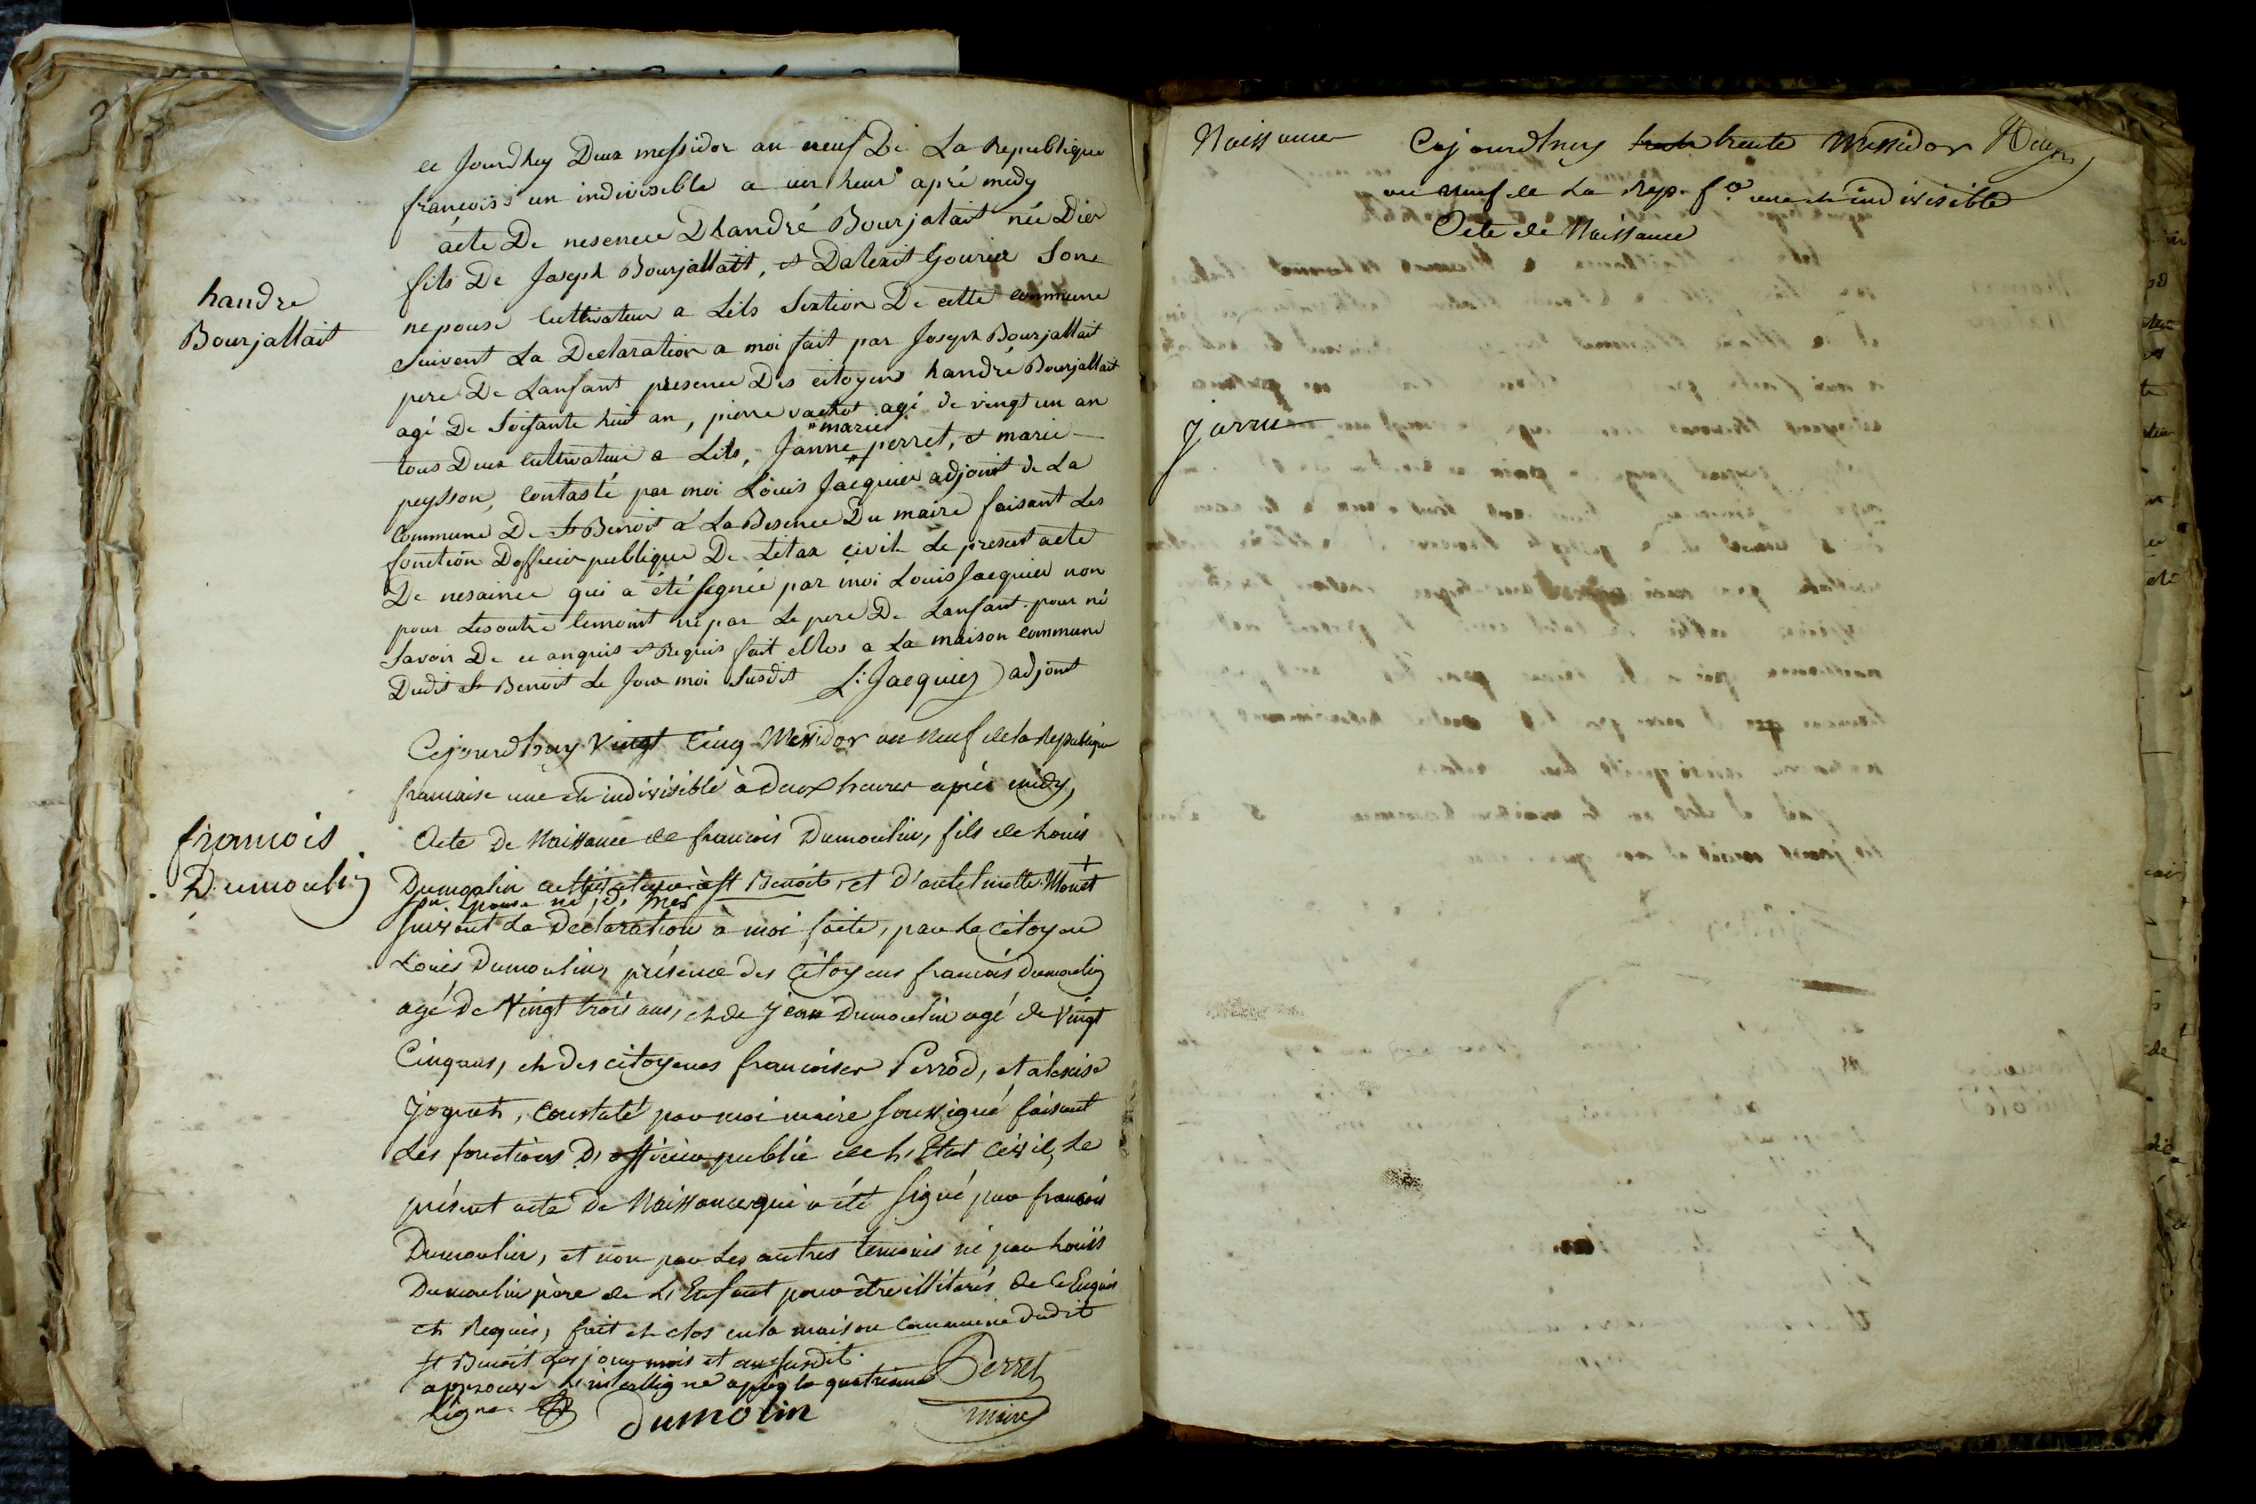 ce Jourdhuy Deux messidor an neuf De La Republique
françoise un indivisible a un heur apré midy
acte De nesence Dhandré Bourjalait née Dier
fils De Joseph Bourjallait, et Dalexit Gourier Son
handre
Bourjallait
nepouse Cultivateur a Lils Section De cette commune
Suivent La Declaration a moi fait par Joseph Bourjallait
pere De Lanfant presence Des citoyens handré Bourjallait
agé De Soisante huit an, pierre vachot agé de vingt un an
tous Deux cultivateur a Lils, Janne "marie" perret, et marie
peysson, Contasté par moi Louis Jacquier adjoint de La
Commune De St Benoit a La Besence Du maire faisant Les
fonction Dofficier publique De Letax civile Le present acte
De nesaince qui a été signée par moi Louis Jacquier non
pour Lesoutre temoint ni par Le pere De Lanfant pour né
Savoir De ce anquis et Requis fait et Clos a La maison commune
Dudit St Benoit Le Jour moi Susdit L. Jacquier adjoint
Cejourdhuy Vingt Cinq Messidor an Neuf de la Republique
francaise une et indivisible à deux heures après midy,
francois
Dumoulin
Acte De Naissance de francois Dumoulin, fils de Louis
Dumoulin cultivateur à St Benoit, et d'antelmette Monet
son epouse né
Suivant La Declaration à moi faite, par Le Citoyen
Louis Dumoulin, présence des Citoyens francois Dumoulin
agé De Vingt trois ans, et de Jean Dumoulin agé de Vingt
Cinq ans, et Des citoyenes francoise Perrod, et alexise
Joguet, Constaté par moi maire Soussigné faisant
Les fonctions D'officier public de L'Etat Civil, Le
présent acte De Naissance qui a été Signé par francois
Dumoulin, et non par Les autres temoins ni par Louis
Dumoulin père de L'Enfant pour être illiterés de ce Enquis
et Requis, fait et clos en la maison Commune dudit
St Benoit Les jour mois et an susdit.
approuvé L'interligne après la quatrieme
Ligne.
Perret
maire
dumolin
Naissance
Cejourdhuy trente Messidor
an neuf de La Rep. fse. une et indivisible
Acte de Naissance